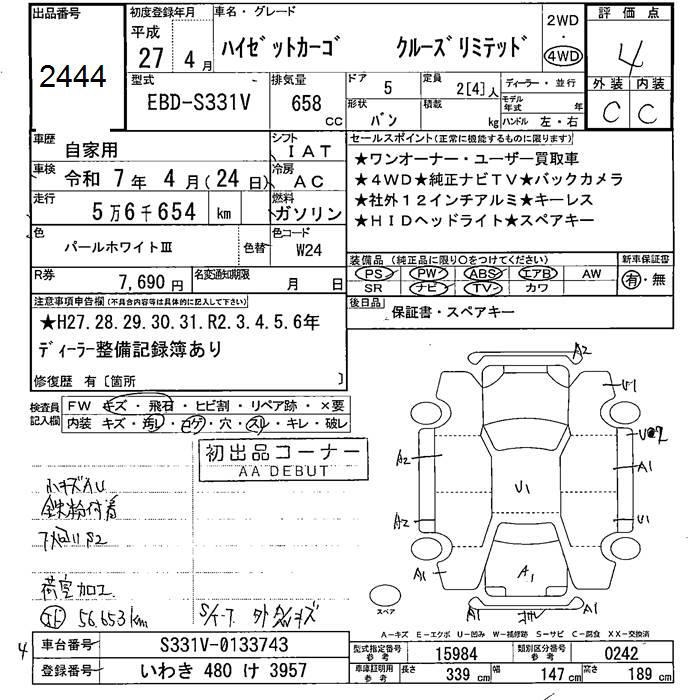 出品番号
2444
初度登録年月
平成
27年 4月
車名・グレード
ハイゼットカーゴ クルーズリミテッド
2WD
・
4WD
評価点
4
外装 内装
C C
型式
EBD-S331V
排気量
658
cc
ドア
5
定員
2[4]人
ディーラー・並行
形状
バン
積載
kg
モデル年式
年
ハンドル 左・右
車歴
自家用
シフト
IAT
車検
令和 7年 4月(24日)
冷房
AC
走行
5万6千654 km
燃料
ガソリン
色
パールホワイトⅢ
色替
色コード
W24
R券
7,690円
名変通知期限
月 日
セールスポイント(正常に機能するものに限ります)
★ワンオーナー・ユーザー買取車
★4WD★純正ナビTV★バックカメラ
★社外12インチアルミ★キーレス
★HIDヘッドライト★スペアキー
装備品(純正品に限り○をつけてください)
新車保証書
PS PW ABS エアB AW
SR ナビ TV カワ
有・無
後日品
保証書・スペアキー
注意事項申告欄(不具合内容等は具体的に記入して下さい)
★H27.28.29.30.31.R2.3.4.5.6年
ディーラー整備記録簿あり
修復歴 有〔箇所 〕
検査員記入欄
FW キズ・飛石・ヒビ割・リペア跡・×要
内装 キズ・汚レ・コゲ・穴・スレ・キレ・破レ
初出品コーナー
AA DEBUT
小キズAU
鉄粉付着
荷室加工
56,653km
A2
U1
A2
A1
U1
A2
U1
A1
A1
A1
スペア
A-キズ E-エクボ U-凹み W-補修跡 S-サビ C-腐食 XX-交換済
4
車台番号
S331V-0133743
登録番号
いわき 480 け 3957
型式指定番号
参考
15984
類別区分番号
参考
0242
車庫証明用
参考
長さ 339 cm 幅 147 cm 高さ 189 cm